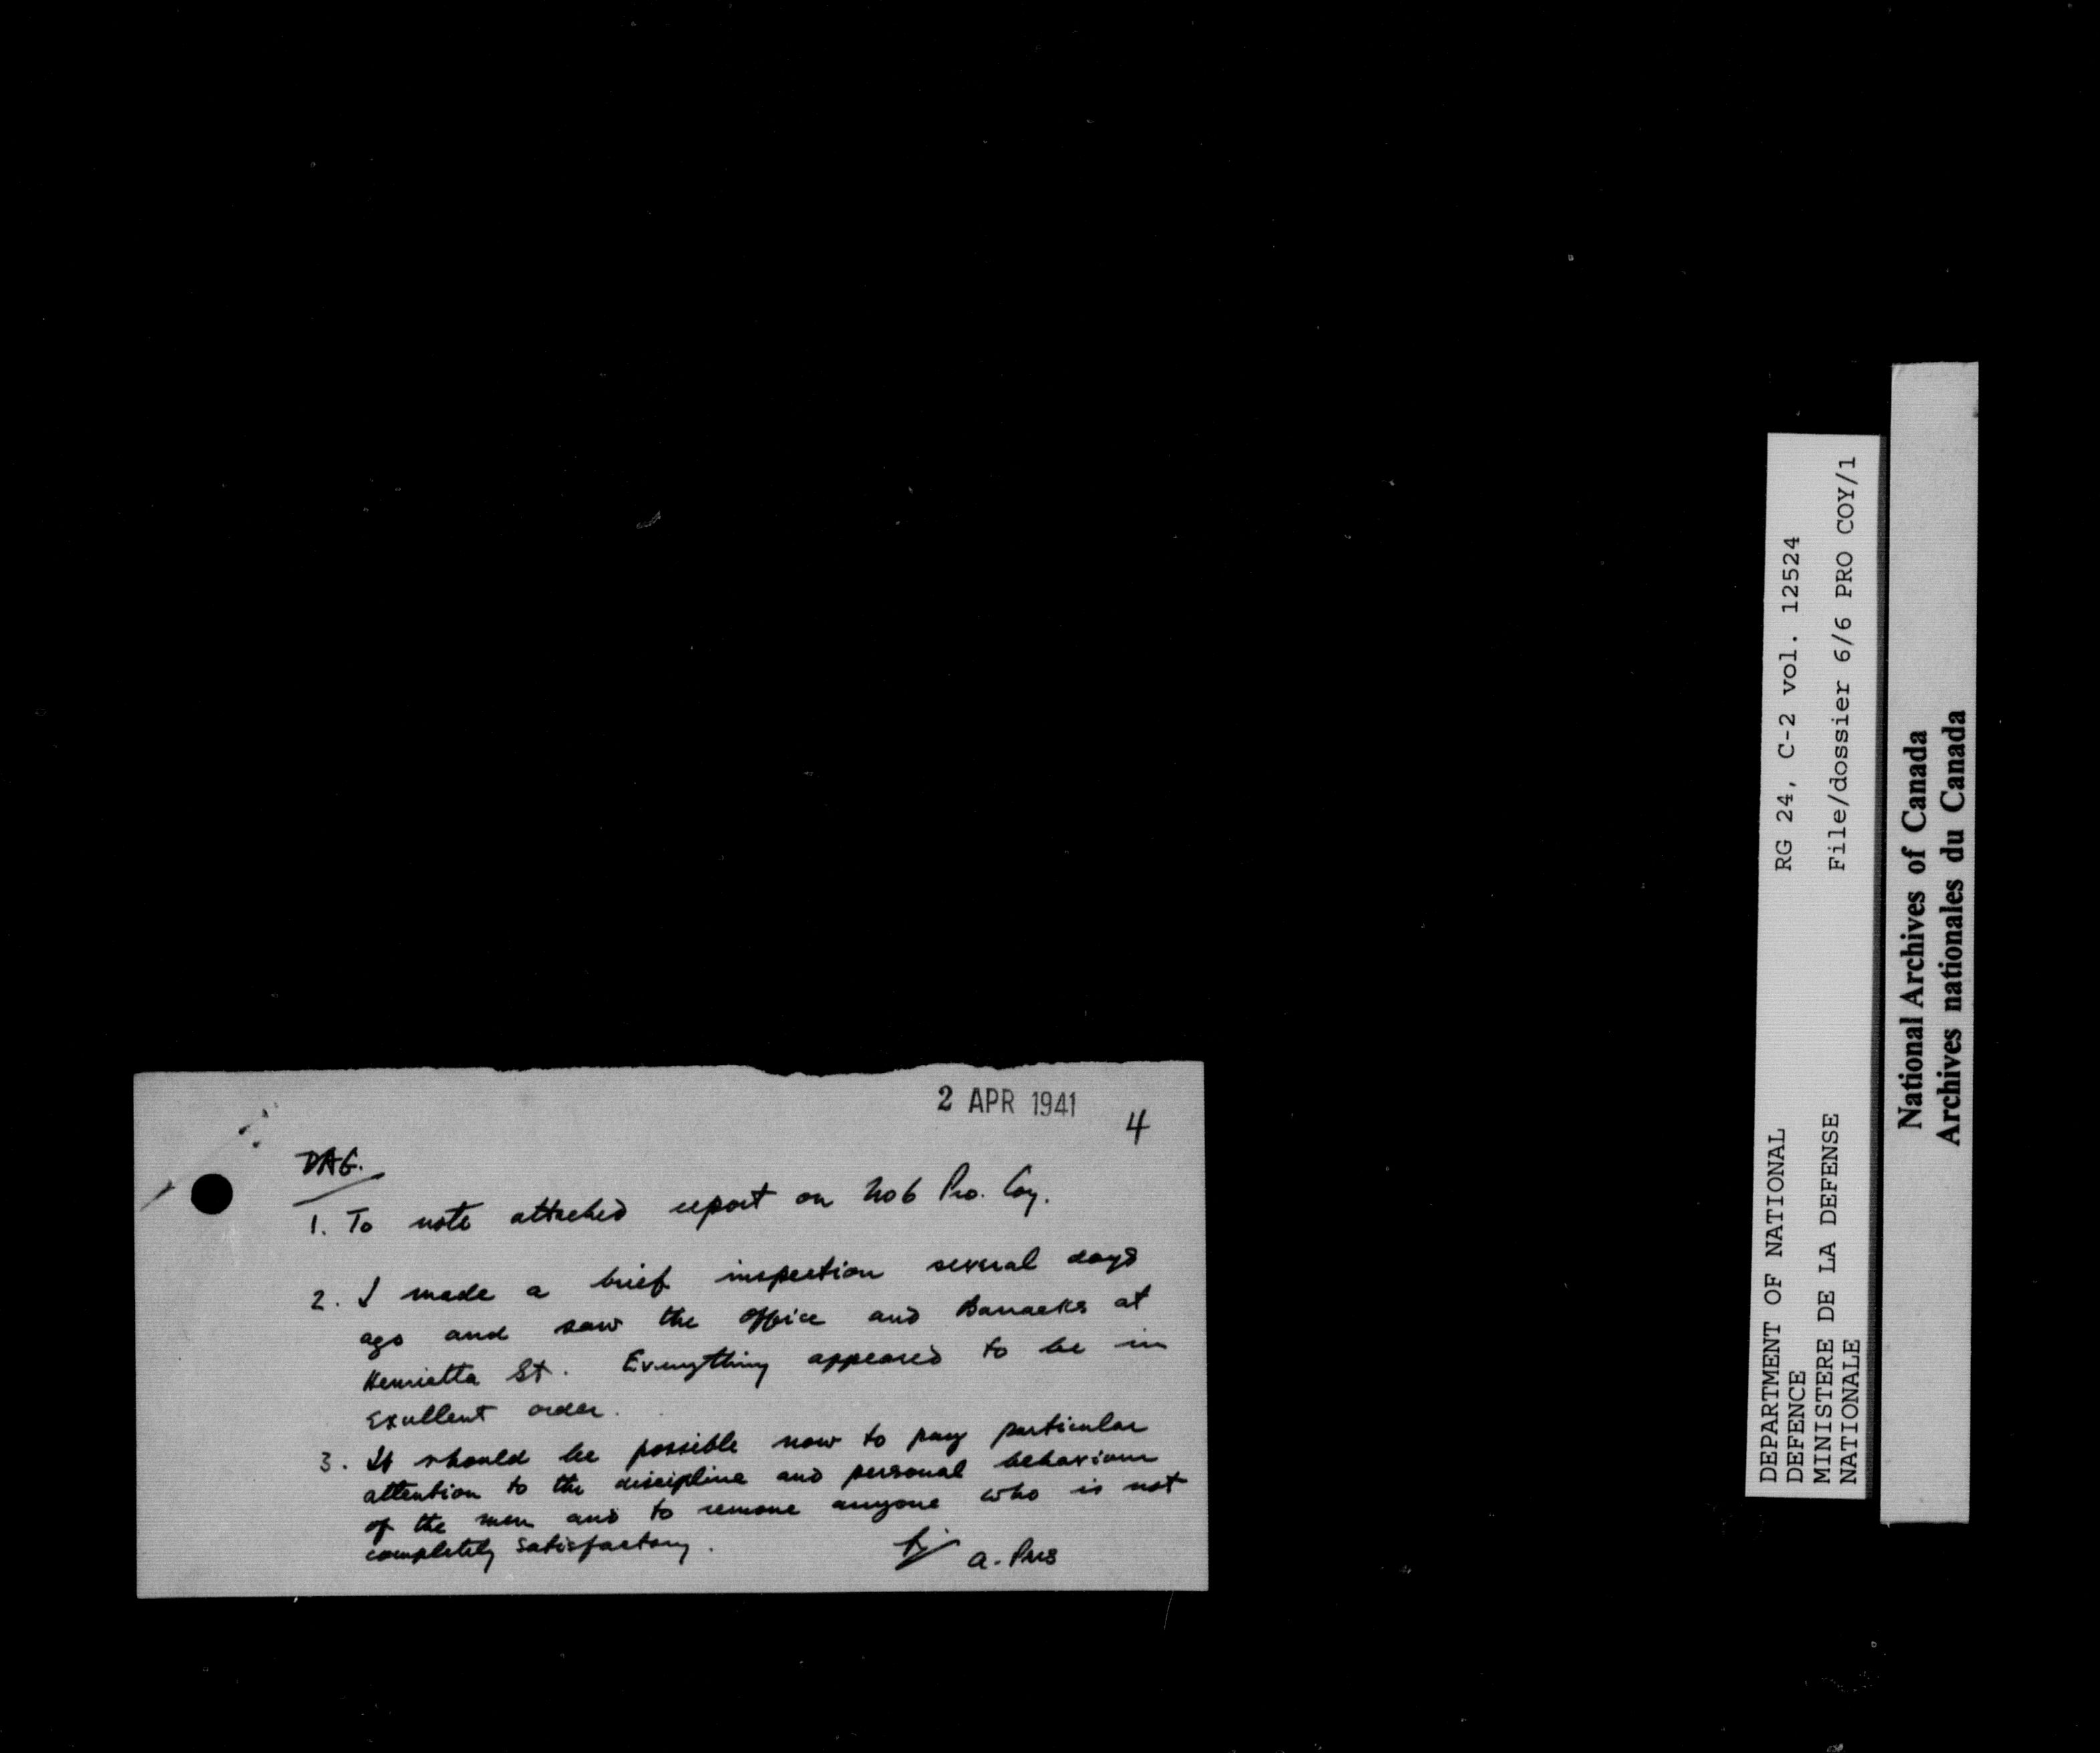 2 APR 1941
4
DAG.
1. To note attached report on No 6 Pro. Coy.
2. I made a brief inspection several days
ago and saw the office and Barracks at
Henrietta St. Everything appeared to be in
Excellent order.
3. It should be possible now to pay particular
attention to the discipline and personal behaviour
of the men and to remove anyone who is not
completely satisfactory.
DEPARTMENT OF NATIONAL
DEFENCE
MINISTERE DE LA DEFENSE
NATIONALE
RG 24, C-2 vol. 12524
File/dossier 6/6 PRO COY/1
National Archives of Canada
Archives nationales du Canada